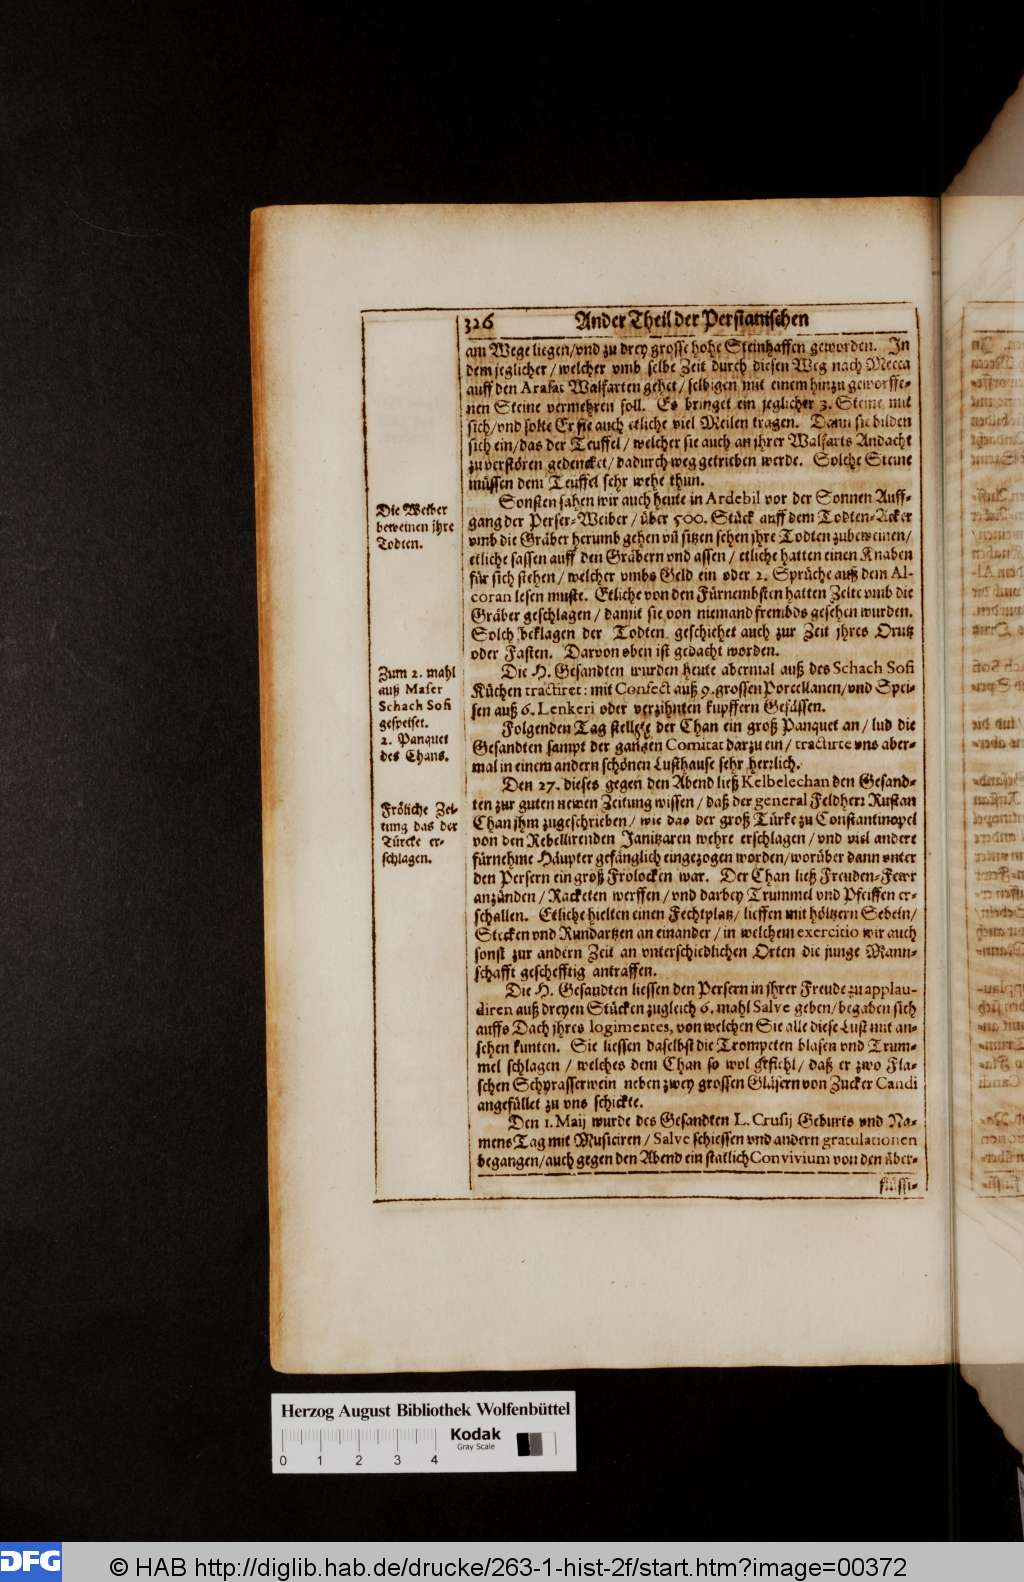 326 Ander Theil der Persianischen
am Wege liegen/vnd zu drey grosse hohe Steinhaffen geworden. In
dem jeglicher/welcher vmb selbe Zeit durch diesen Weg nach Mecca
auff den Arafat Walfarten gehet/selbigen mit einem hinzu geworffe-
nen Steine vermehren soll. Es bringet ein jeglicher 3. Steine mit
sich/vnd solte Er sie auch etliche viel Meilen tragen. Dann sie bilden
sich ein/das der Teuffel/welcher sie auch an jhrer Walfarts Andacht
zu verstören gedencket/dadurch weg getrieben werde. Solche Steine
müssen dem Teuffel sehr wehe thun.
Die Weiber
beweinen jhre
Todten.
Sonsten sahen wir auch heute in Ardebil vor der Sonnen Auff-
gang der Perser-Weiber/über 500. Stück auff dem Todten-Acker
vmb die Gräber herumb gehen vñ sitzen sehen jhre Todten zubeweinen/
etliche sassen auff den Gräbern vnd assen/etliche hatten einen Knaben
für sich stehen/welcher vmbs Geld ein oder 2. Sprüche auß dem Al-
coran lesen muste. Etliche von den Fürnembsten hatten Zelte vmb die
Gräber geschlagen/damit sie von niemand frembds gesehen wurden.
Solch beklagen der Todten geschiehet auch zur Zeit jhres Orutz
oder Fasten. Darvon oben ist gedacht worden.
Zum 2. mahl
auß Maser
Schach Sofi
gespeiset.
Die H. Gesandten wurden heute abermal auß des Schach Sofi
Küchen tractiret: mit Confect auß 9. grossen Porcellanen/vnd Spei-
sen auß 6. Lenkeri oder verzihnten kupffern Gefässen.
2. Panquet
des Chans.
Folgenden Tag stellete der Chan ein groß Panquet an/lud die
Gesandten sampt der gantzen Comitat darzu ein/tractirte vns aber-
mal in einem andern schönen Lusthause sehr herzlich.
Fröliche Zei-
tung das der
Türcke er-
schlagen.
Den 27. dieses gegen den Abend ließ Kelbelechan den Gesand-
ten zur guten newen Zeitung wissen/daß der general Feldherr Rustan
Chan jhm zugeschrieben/wie das der groß Türke zu Constantinopel
von den Rebellirenden Janitzaren wehre erschlagen/vnd viel andere
fürnehme Häupter gefänglich eingezogen worden/worüber dann vnter
den Persern ein groß Frolocken war. Der Chan ließ Freuden-Fewr
anzünden/Racketen werffen/vnd darbey Trummel vnd Pfeiffen er-
schallen. Etliche hielten einen Fechtplatz/lieffen mit höltzern Sebeln/
Stecken vnd Rundartzen an einander/in welchem exercitio wir auch
sonst zur andern Zeit an vnterschiedlichen Orten die junge Mann-
schafft geschefftig antraffen.
Die H. Gesandten liessen den Persern in jhrer Freude zu applau-
diren auß dreyen Stücken zugleich 6. mahl Salve geben/begaben sich
auffs Dach jhres logimentes, von welchen Sie alle diese Lust mit an-
sehen kunten. Sie liessen daselbst die Trompeten blasen vnd Trum-
mel schlagen/welches dem Chan so wol gefiehl/daß er zwo Fla-
schen Schyrasserwein neben zwey grossen Gläsern von Zucker Candi
angefüllet zu vns schickte.
Den 1. Maij wurde des Gesandten L. Crusij Geburts vnd Na-
mens Tag mit Musiciren/Salve schiessen vnd andern gratulationen
begangen/auch gegen den Abend ein statlich Convivium von den über-
flüssi-
Herzog August Bibliothek Wolfenbüttel
Kodak
Gray Scale
0 1 2 3 4
DFG
© HAB http://diglib.hab.de/drucke/263-1-hist-2f/start.htm?image=00372